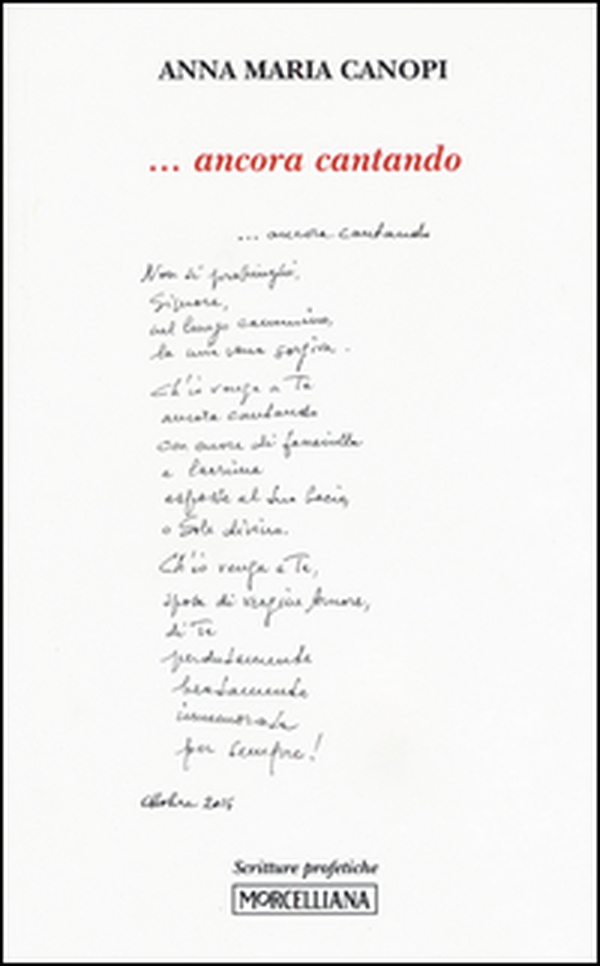 ANNA MARIA CANOPI
... ancora cantando
... ancora cantando
Non si prosciughi,
Signore,
nel lungo cammino,
la mia vena sorgiva.
Ch'io venga a Te
ancora cantando
con cuore di fanciulla
e lacrime
esposte al tuo bacio,
o Sole divino.
Ch'io venga a Te,
sposa di vergine Amore,
di Te
perdutamente
beatamente
innamorata
per sempre!
Ottobre
Scritture profetiche
MORCELLIANA